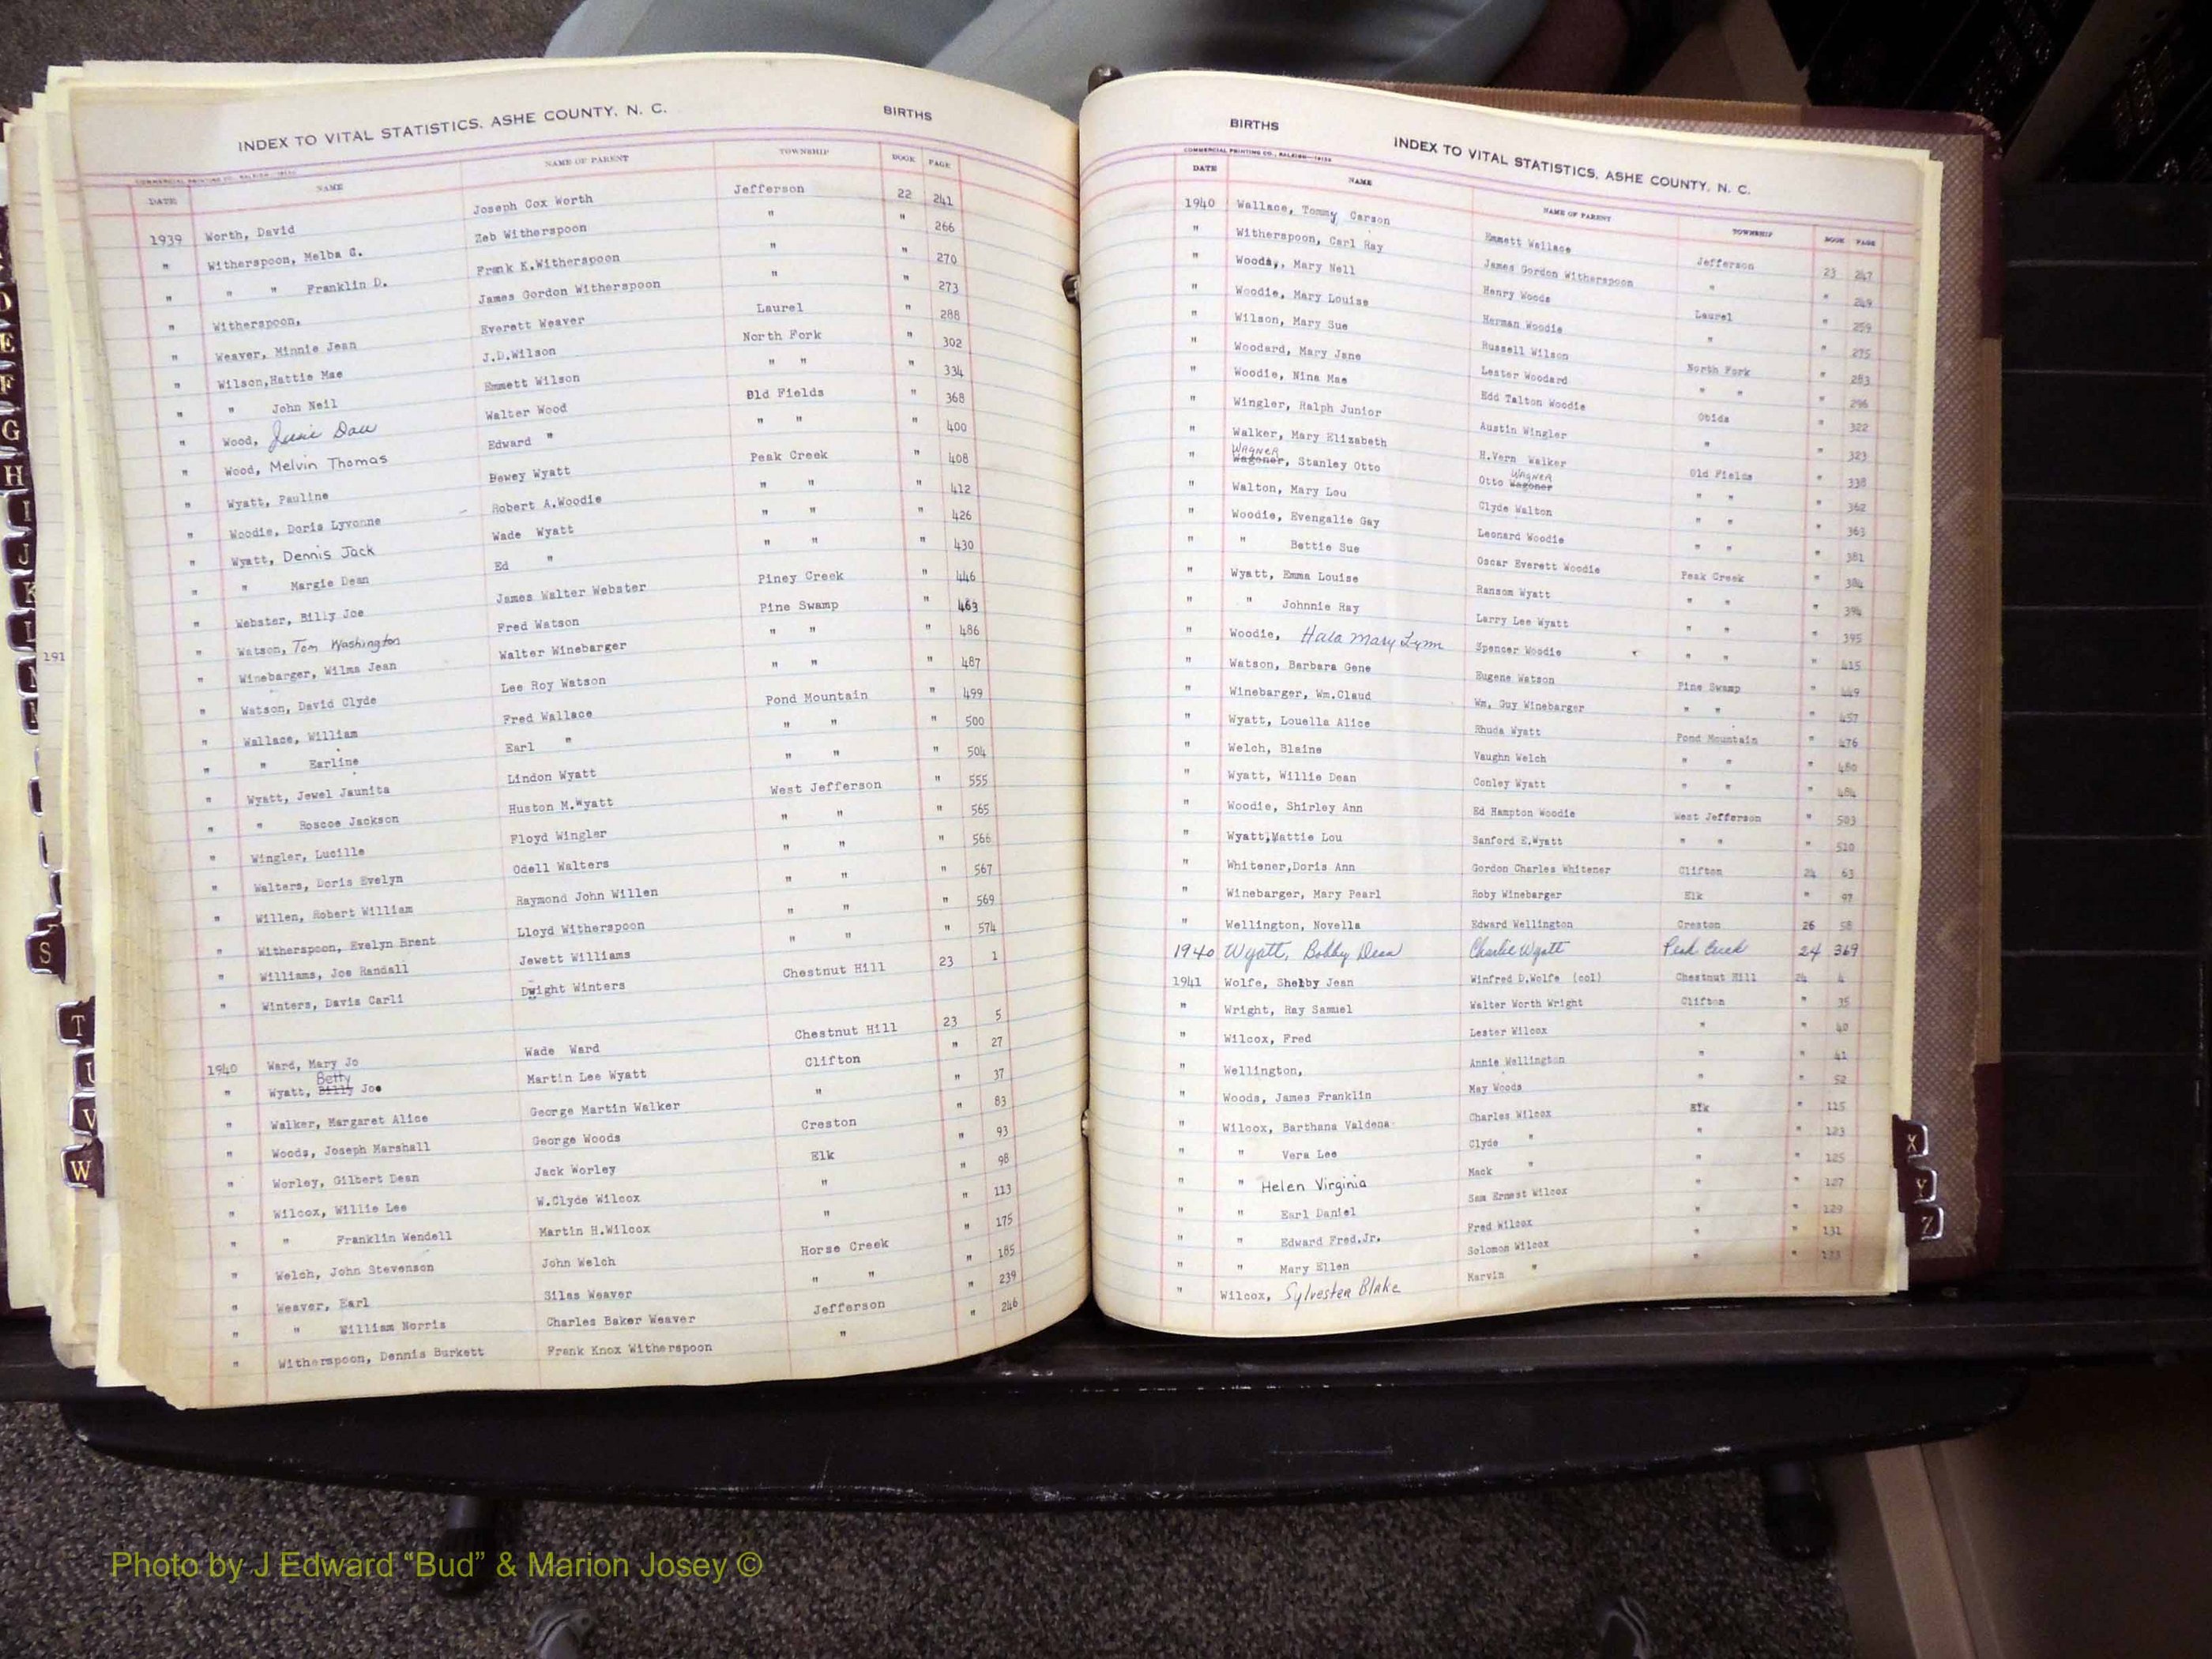 INDEX TO VITAL STATISTICS, ASHE COUNTY, N. C. BIRTHS
COMMERCIAL PRINTING CO., RALEIGH
DATE NAME NAME OF PARENT TOWNSHIP BOOK PAGE
1939 Worth, David Joseph Cox Worth Jefferson 22 241
" Witherspoon, Melba G. Zeb Witherspoon " " 266
" " " Franklin D. Frank K.Witherspoon " " 270
" Witherspoon, James Gordon Witherspoon " " 273
" Weaver, Minnie Jean Everett Weaver Laurel " 288
" Wilson,Hattie Mae J.D.Wilson North Fork " 302
" " John Neil Emmett Wilson " " " 334
" Wood, Walter Wood Old Fields " 368
" Wood, Melvin Thomas Edward " " " " 400
" Wyatt, Pauline Dewey Wyatt Peak Creek " 408
" Woodie, Doris Lyvonne Robert A.Woodie " " " 412
" Wyatt, Dennis Jack Wade Wyatt " " " 426
" " Margie Dean Ed " " " " 430
" Webster, Billy Joe James Walter Webster Piney Creek " 446
" Watson, Tom Washington Fred Watson Pine Swamp " 463
" Winebarger, Wilma Jean Walter Winebarger " " " 486
" Watson, David Clyde Lee Roy Watson " " " 487
" Wallace, William Fred Wallace Pond Mountain " 499
" " Earline Earl " " " " 500
" Wyatt, Jewel Jaunita Lindon Wyatt " " " 504
" " Roscoe Jackson Huston M.Wyatt West Jefferson " 555
" Wingler, Lucille Floyd Wingler " " " 565
" Walters, Doris Evelyn Odell Walters " " " 566
" Willen, Robert William Raymond John Willen " " " 567
" Witherspoon, Evelyn Brent Lloyd Witherspoon " " " 569
" Williams, Joe Randall Jewett Williams " " " 574
" Winters, Davis Carli Dwight Winters Chestnut Hill 23 1
1940 Ward, Mary Jo Wade Ward Chestnut Hill 23 5
" Wyatt, Billy Betty Joe Martin Lee Wyatt Clifton " 27
" Walker, Margaret Alice George Martin Walker " " 37
" Woods, Joseph Marshall George Woods Creston " 83
" Worley, Gilbert Dean Jack Worley Elk " 93
" Wilcox, Willie Lee W.Clyde Wilcox " " 98
" " Franklin Wendell Martin H.Wilcox " " 113
" Welch, John Stevenson John Welch Horse Creek " 175
" Weaver, Earl Silas Weaver " " " 185
" " William Norris Charles Baker Weaver Jefferson " 239
" Witherspoon, Dennis Burkett Frank Knox Witherspoon " " 246
BIRTHS INDEX TO VITAL STATISTICS, ASHE COUNTY, N. C.
COMMERCIAL PRINTING CO., RALEIGH
DATE NAME NAME OF PARENT TOWNSHIP BOOK PAGE
1940 Wallace, Tommy Carson Emmett Wallace Jefferson 23 247
" Witherspoon, Carl Ray James Gordon Witherspoon " " 249
" Woods, Mary Nell Henry Woods Laurel " 259
" Woodie, Mary Louise Herman Woodie " " 275
" Wilson, Mary Sue Russell Wilson North Fork " 283
" Woodard, Mary Jane Lester Woodard " " " 296
" Woodie, Nina Mae Edd Talton Woodie Obids " 322
" Wingler, Ralph Junior Austin Wingler " " 323
" Walker, Mary Elizabeth H.Vern Walker Old Fields " 338
" Wagoner WAGNER, Stanley Otto Otto Wagoner WAGNER " " " 362
" Walton, Mary Lou Clyde Walton " " " 363
" Woodie, Evengalie Gay Leonard Woodie " " " 381
" " Bettie Sue Oscar Everett Woodie Peak Creek " 384
" Wyatt, Emma Louise Ransom Wyatt " " " 394
" " Johnnie Ray Larry Lee Wyatt " " " 395
" Woodie, Mary Lynn Spencer Woodie " " " 415
" Watson, Barbara Gene Eugene Watson Pine Swamp " 449
" Winebarger, Wm.Claud Wm. Guy Winebarger " " " 457
" Wyatt, Louella Alice Rhuda Wyatt Pond Mountain " 476
" Welch, Blaine Vaughn Welch " " " 480
" Wyatt, Willie Dean Conley Wyatt " " " 484
" Woodie, Shirley Ann Ed Hampton Woodie West Jefferson " 503
" Wyatt,Mattie Lou Sanford E.Wyatt " " " 510
" Whitener,Doris Ann Gordon Charles Whitener Clifton 24 63
" Winebarger, Mary Pearl Roby Winebarger Elk " 97
" Wellington, Novella Edward Wellington Creston 26 58
1940 Wyatt, Bobby Dean Charlie Wyatt Peak Creek 24 369
1941 Wolfe, Shelby Jean Winfred D.Wolfe (col) Chestnut Hill 24 4
" Wright, Ray Samuel Walter Worth Wright Clifton " 35
" Wilcox, Fred Lester Wilcox " " 40
" Wellington, Annie Wellington " " 41
" Woods, James Franklin May Woods " " 52
" Wilcox, Barthana Valdena Charles Wilcox Elk " 115
" " Vera Lee Clyde " " " 123
" " Helen Virginia Mack " " " 125
" " Earl Daniel Sam Ernest Wilcox " " 127
" " Edward Fred.Jr. Fred Wilcox " " 129
" " Mary Ellen Solomon Wilcox " " 131
" Wilcox, Sylvester Blake Marvin " " " 133
191
D
E
F
G
H
I
J
K
L
S
T
U
V
W
X
Y
Z
Photo by J Edward “Bud” & Marion Josey ©